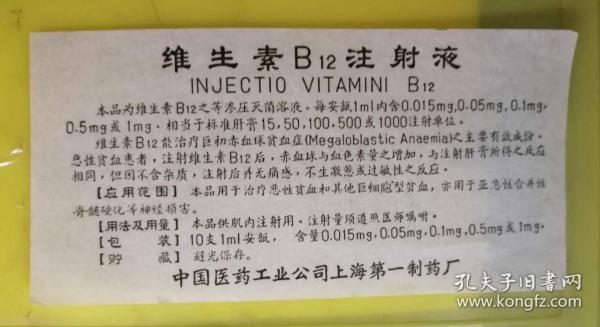 维生素B12注射液
INJECTIO VITAMINI B12
本品为维生素B12之等渗压灭菌溶液。每安瓿1ml内含0.015mg,0.05mg,0.1mg,
0.5mg或1mg。相当于标准肝膏15,50,100,500或1000注射单位。
维生素B12能治疗巨初赤血球贫血症(Megaloblastic Anaemia)之主要有效成份。
恶性贫血患者，注射维生素B12后，赤血球与血色素量之增加，与注射肝膏所得之反应
相同，但因不含杂质，注射后并无痛感，不生凝蒸或过敏性之反应。
【应用范围】本品用于治疗恶性贫血和其他巨细胞型贫血，亦用于亚急性合并性
脊髓硬化等神经损害。
【用法及用量】本品供肌内注射用。注射量须遵照医师嘱咐。
【包 装】10支1ml安瓿，含量0.015mg,0.05mg,0.1mg,0.5mg或1mg。
【贮 藏】避光保存。
中国医药工业公司上海第一制药厂
孔夫子旧书网
www.kongfz.com